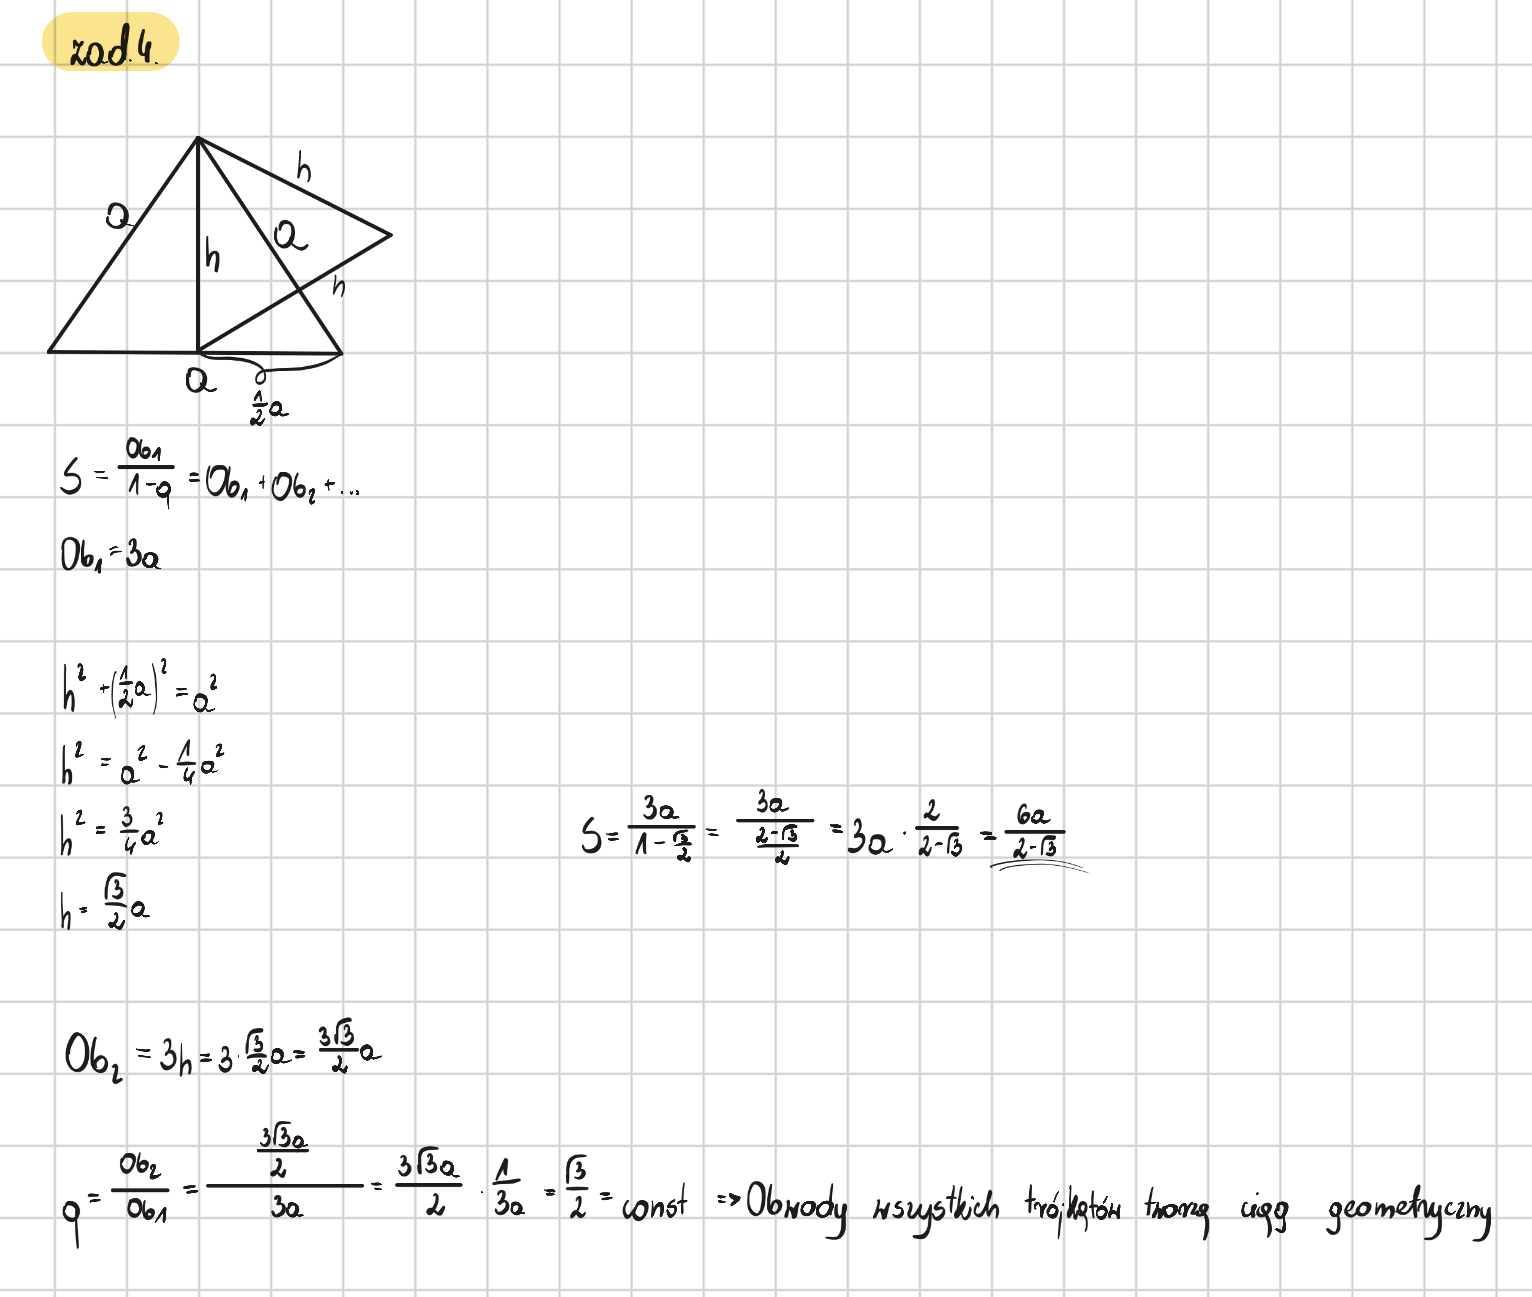 zad.4.
h
a
a
h
h
a
1/2 a
S = Ob₁/(1-q) = Ob₁ + Ob₂ + ...
Ob₁ = 3a
h² + (1/2 a)² = a²
h² = a² - 1/4 a²
h² = 3/4 a²
h = √3/2 a
S = 3a/(1 - √3/2) = 3a/((2-√3)/2) = 3a · 2/(2-√3) = 6a/(2-√3)
Ob₂ = 3h = 3 · √3/2 a = 3√3/2 a
q = Ob₂/Ob₁ = (3√3a/2)/3a = 3√3a/2 · 1/3a = √3/2 = const => Obwody wszystkich trójkątów tworzą ciąg geometryczny